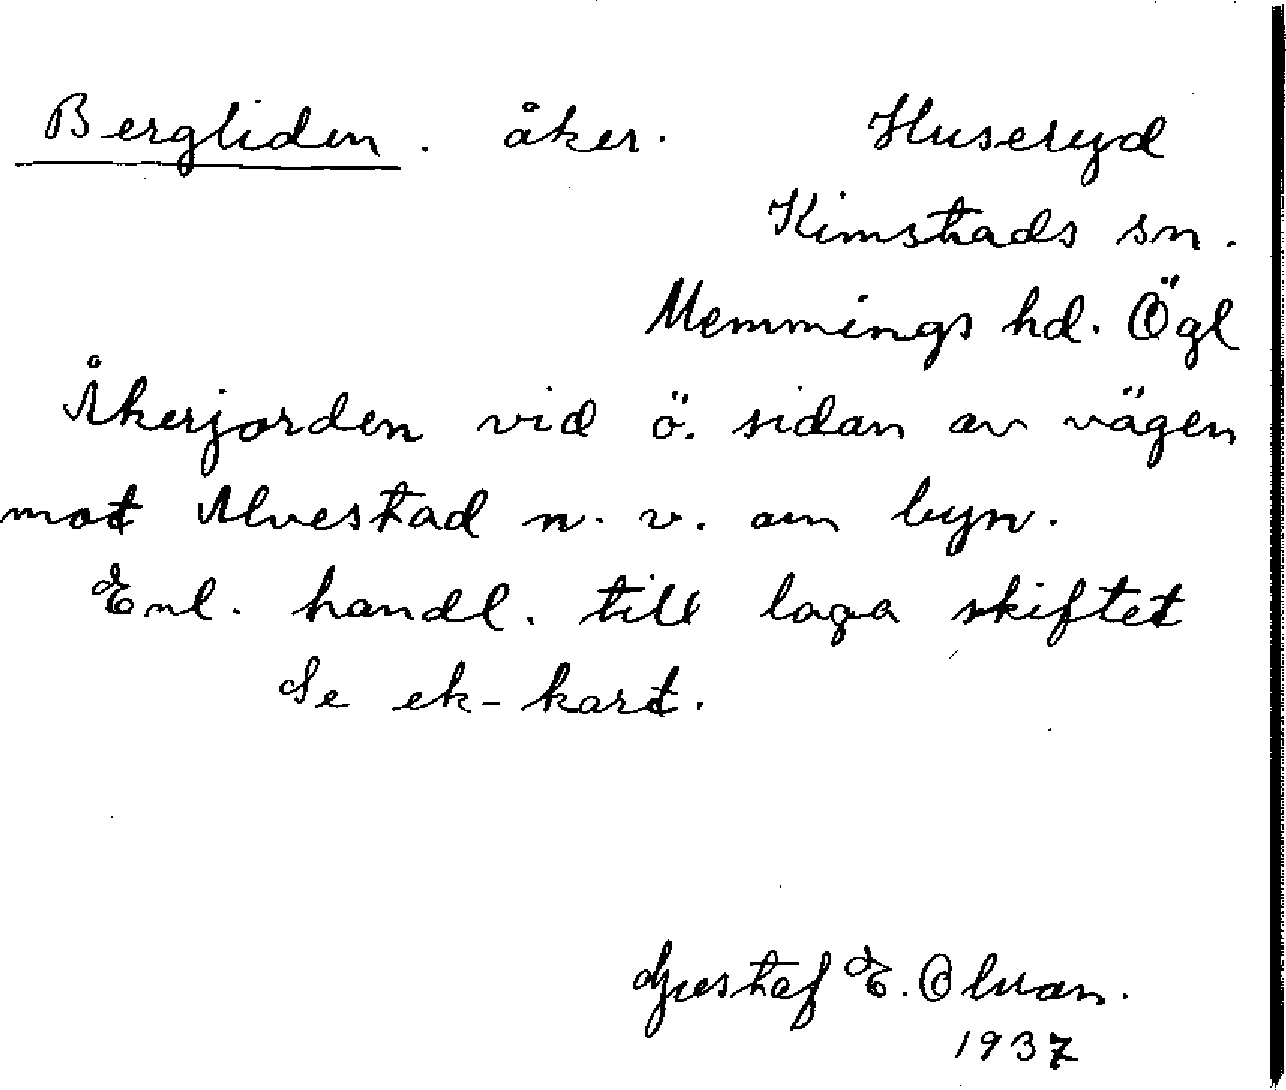 Bergliden. åker. Huseryd
Kimstads sn.
Memmings hd. Ögl
Åkerjorden vid ö. sidan av vägen
mot Alvestad n. v. om byn.
Enl. handl. till laga skiftet
Se ek-kart.
Gustaf E. Olvan.
1937